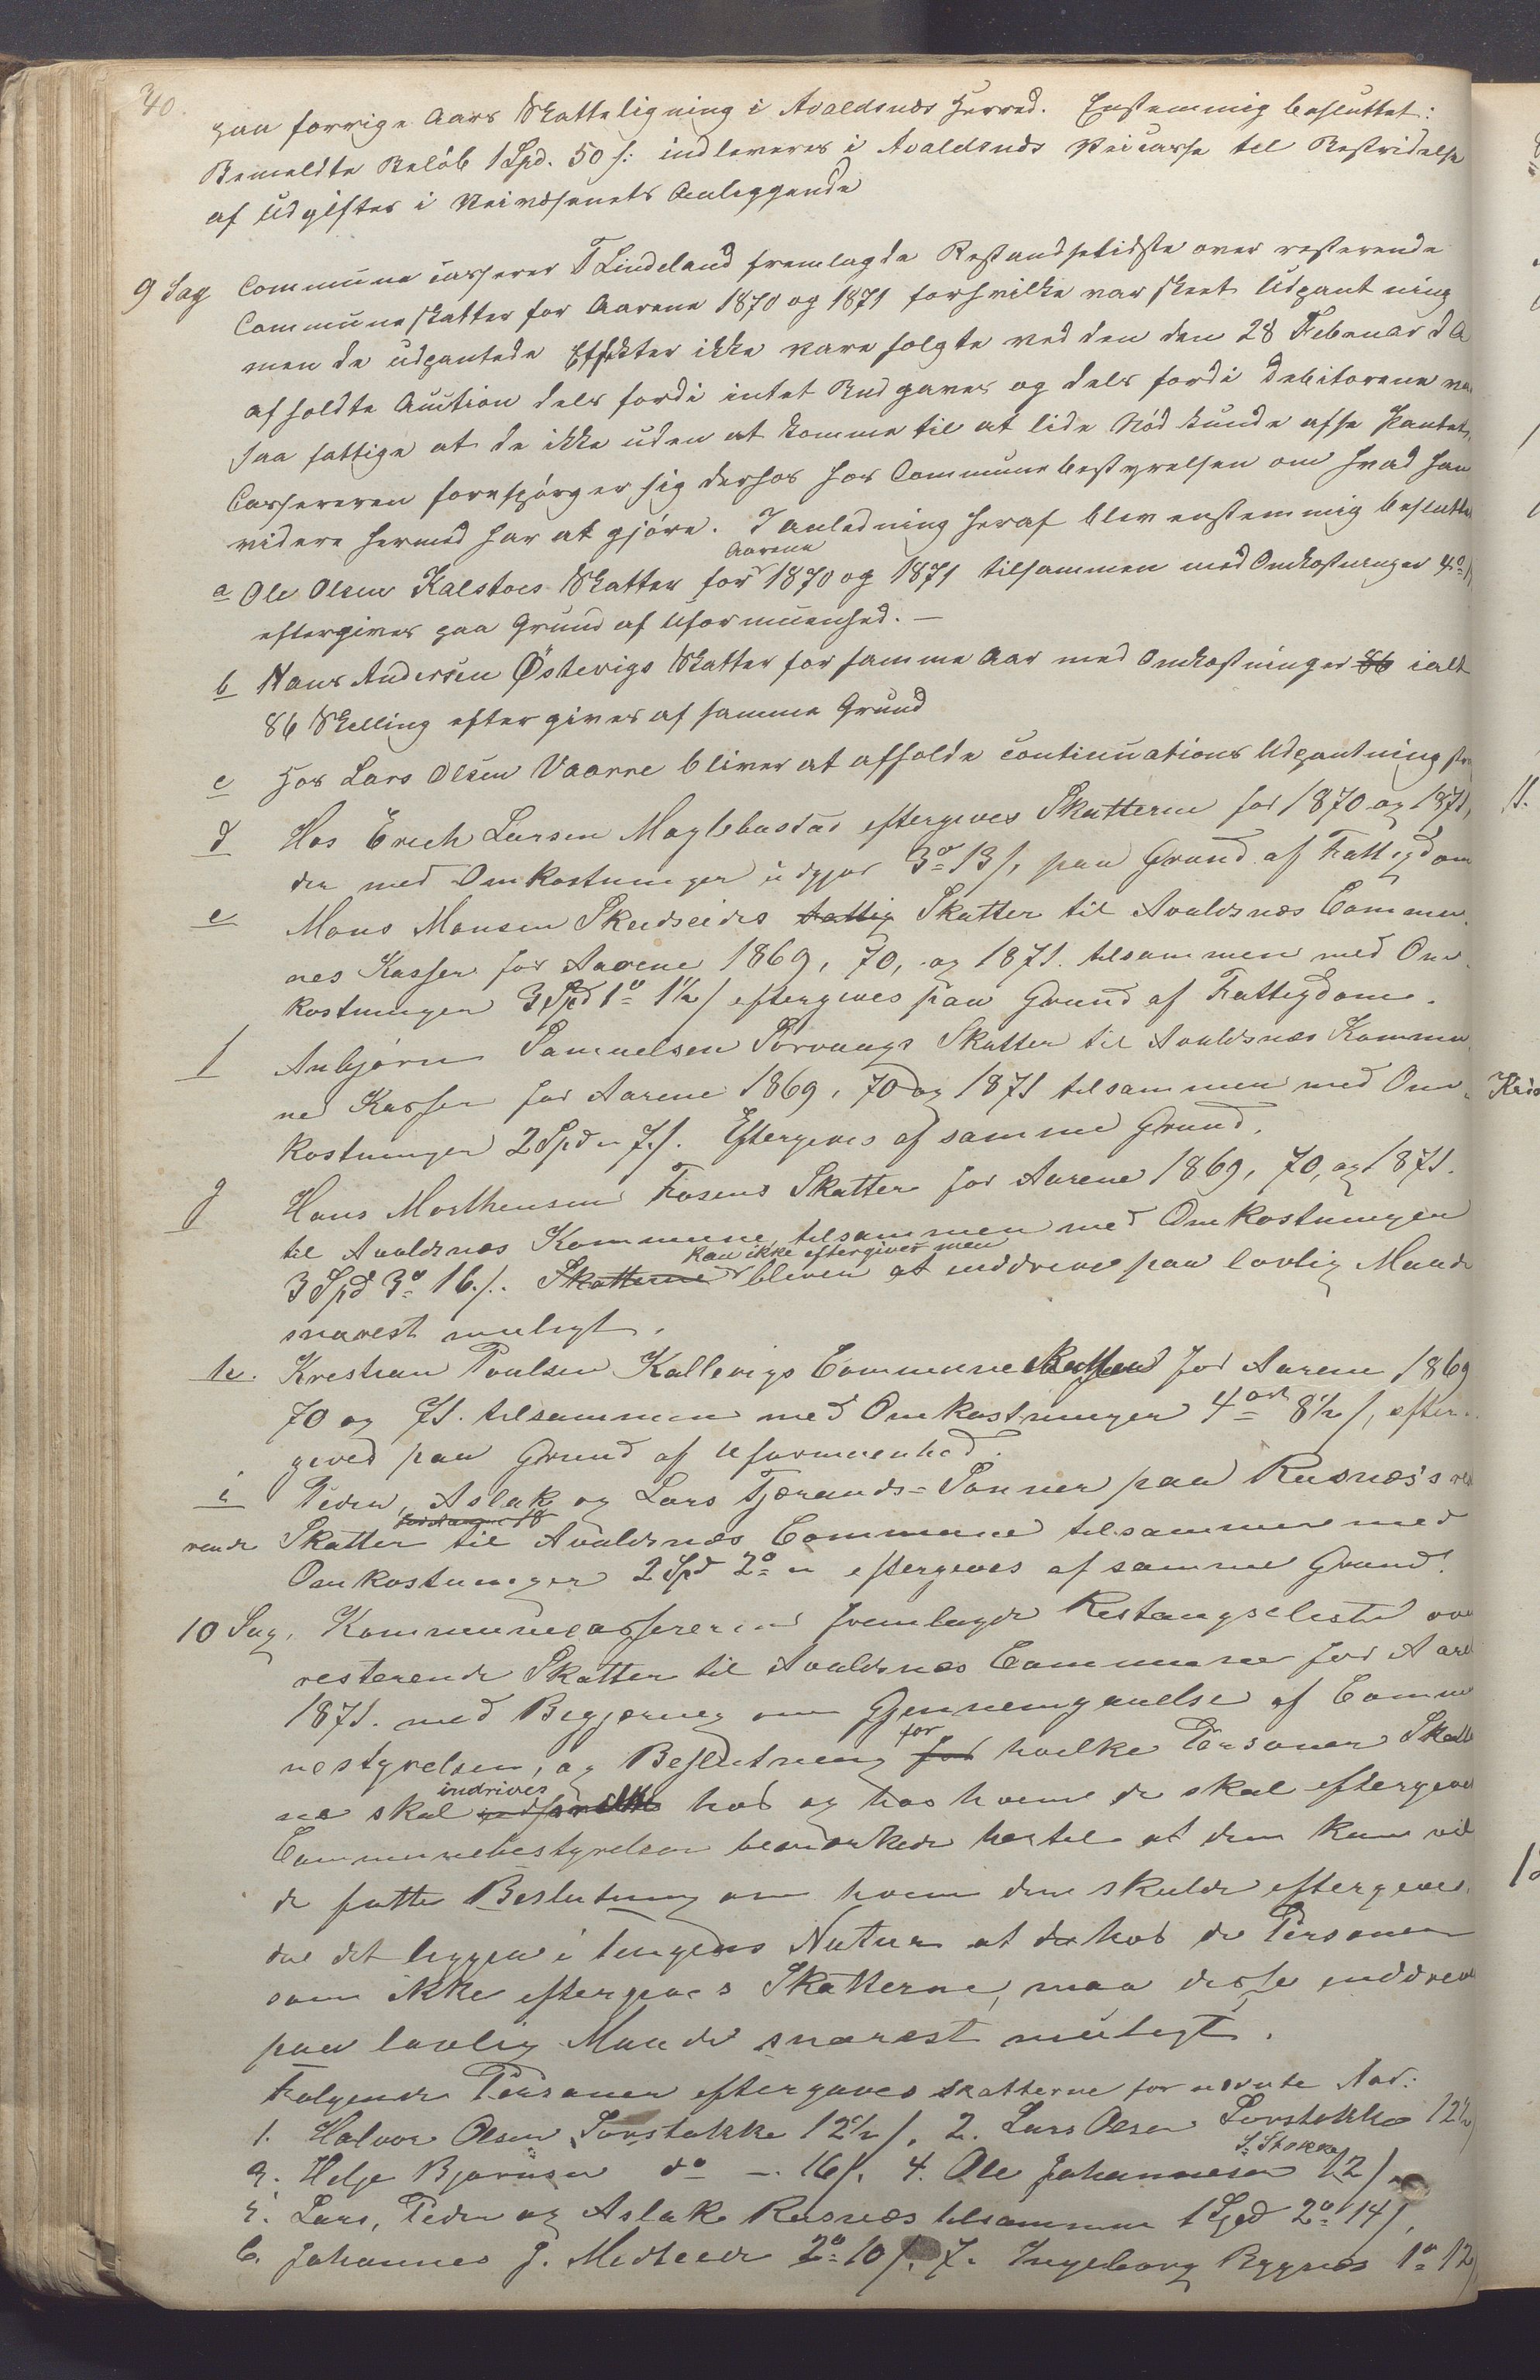 40.
paa forrige Aars Skatteligning i Avaldsnæs Herred. Enstemmig besluttet:
Bemeldte Beløb 1 Spd. 50 s: indleveres i Avaldsnæs Veicasse til Bestridelse
af Udgifter i Veivæsenets Anliggende
9 Sag Communecasserer T Lindeland fremlagde Restandseliste over resterende
Communeskatter for Aarene 1870 og 1871 forhvilke var skeet Udpantning
men de udpantede Effekter ikke vare solgte ved den den 28 Februar d A
afholdte Auction dels fordi intet Bud gaves og dels fordi Debitorene var
saa fattige at de ikke uden at komme til at lide Nød kunde afse Pantet.
Cassereren forespørger sig derhos hos Communebestyrelsen om hvad han
videre hermed har at gjøre. I anledning heraf blev enstemmig besluttet
Aarene
a Ole Olsen Kalstøes Skatter for 1870 og 1871 tilsammen med Omkostninger
eftergives paa Grund af Uformuenhed. —
b Hans Andersen Østevigs Skatter for samme Aar med Omkostninger 86 ialt
86 Skilling eftergives af samme Grund
c Hos Lars Olsen Vaarre bliver at afholde continuations Udpantning
d Hos Erich Larsen Møglebustad eftergives Skatterne for 1870 og 1871,
der med Omkostninger udgjør 3o 13 s, paa Grund af Fattigdom
e Mons Monsen Skeidseides fattig Skatter til Avaldsnæs Commu-
nes Kasse for Aarene 1869, 70, og 1871. tilsammen med Om-
kostninger 3 Spd 1o 1½ s eftergives paa Grund af Fattigdom.
f Anbjørn Samuelsen Sørvaags Skatter til Avaldsnæs Kommu-
ne Kasse for Aarene 1869, 70 og 1871 tilsammen med Om-
kostninger 2 Spd " 7 s. Eftergives af samme Grund.
g Hans Morthensen Fosens Skatter for Aarene 1869, 70, og 1871.
til Avaldsnæs Kommune, tilsammen med Omkostninger
kan ikke eftergives men
3 Spd 3o 16 s. Skatterne bliver at inddrive paa lovlig Maade
snarest muligt.
h. Kristian Poulsen Kallevigs Communeskatter for Aarene 1869
70 og 71. tilsammen med Omkostninger 4 ort 8½ s, efter-
gives paa Grund af Uformuenhed.
i Peder, Aslak og Lars Tjerands-Sønner paa Rusnæs's re
rende Skatter til Avaldsnæs Commune tilsammen med
Omkostninger 2 Spd 2o " eftergives af samme Grund.
10 Sag. Kommunecassereren fremlagde Restangseliste over
resterende Skatter til Avaldsnæs Commune for Aaret
1871. med Begjæring om Gjennemgaaelse af Commu
for
nestyrelsen, og Beslutning for hvilke Personer Skatte
indrives
ne skal hos og hos hvem de skal eftergives
Communebestyrelsen bemærkede hertil at den kun vil
de fatte Beslutning om hvem den skulde eftergives,
da det ligger i tingens Natur at da hos de Personer
som ikke eftergives Skatterne, maa disse inddrives
paa lovlig Maade snarest muligt.
Følgende Personer eftergaves skatterne for nævnte Aar:
1. Halvor Olsen Sørstokke 12½ s. 2. Lars Olsen Sørstokke 12½
S. Stokke
3. Helje Bjørnsen do —. 16 s. 4. Ole Johannesen 12 s.
5. Lars, Peder og Aslak Rusnæs tilsammen 1 Spd 2o 14 s.
6. Johannes J. Midteide 2o 10 s. 7. Ingeborg Bygnæs 1o 12
11.